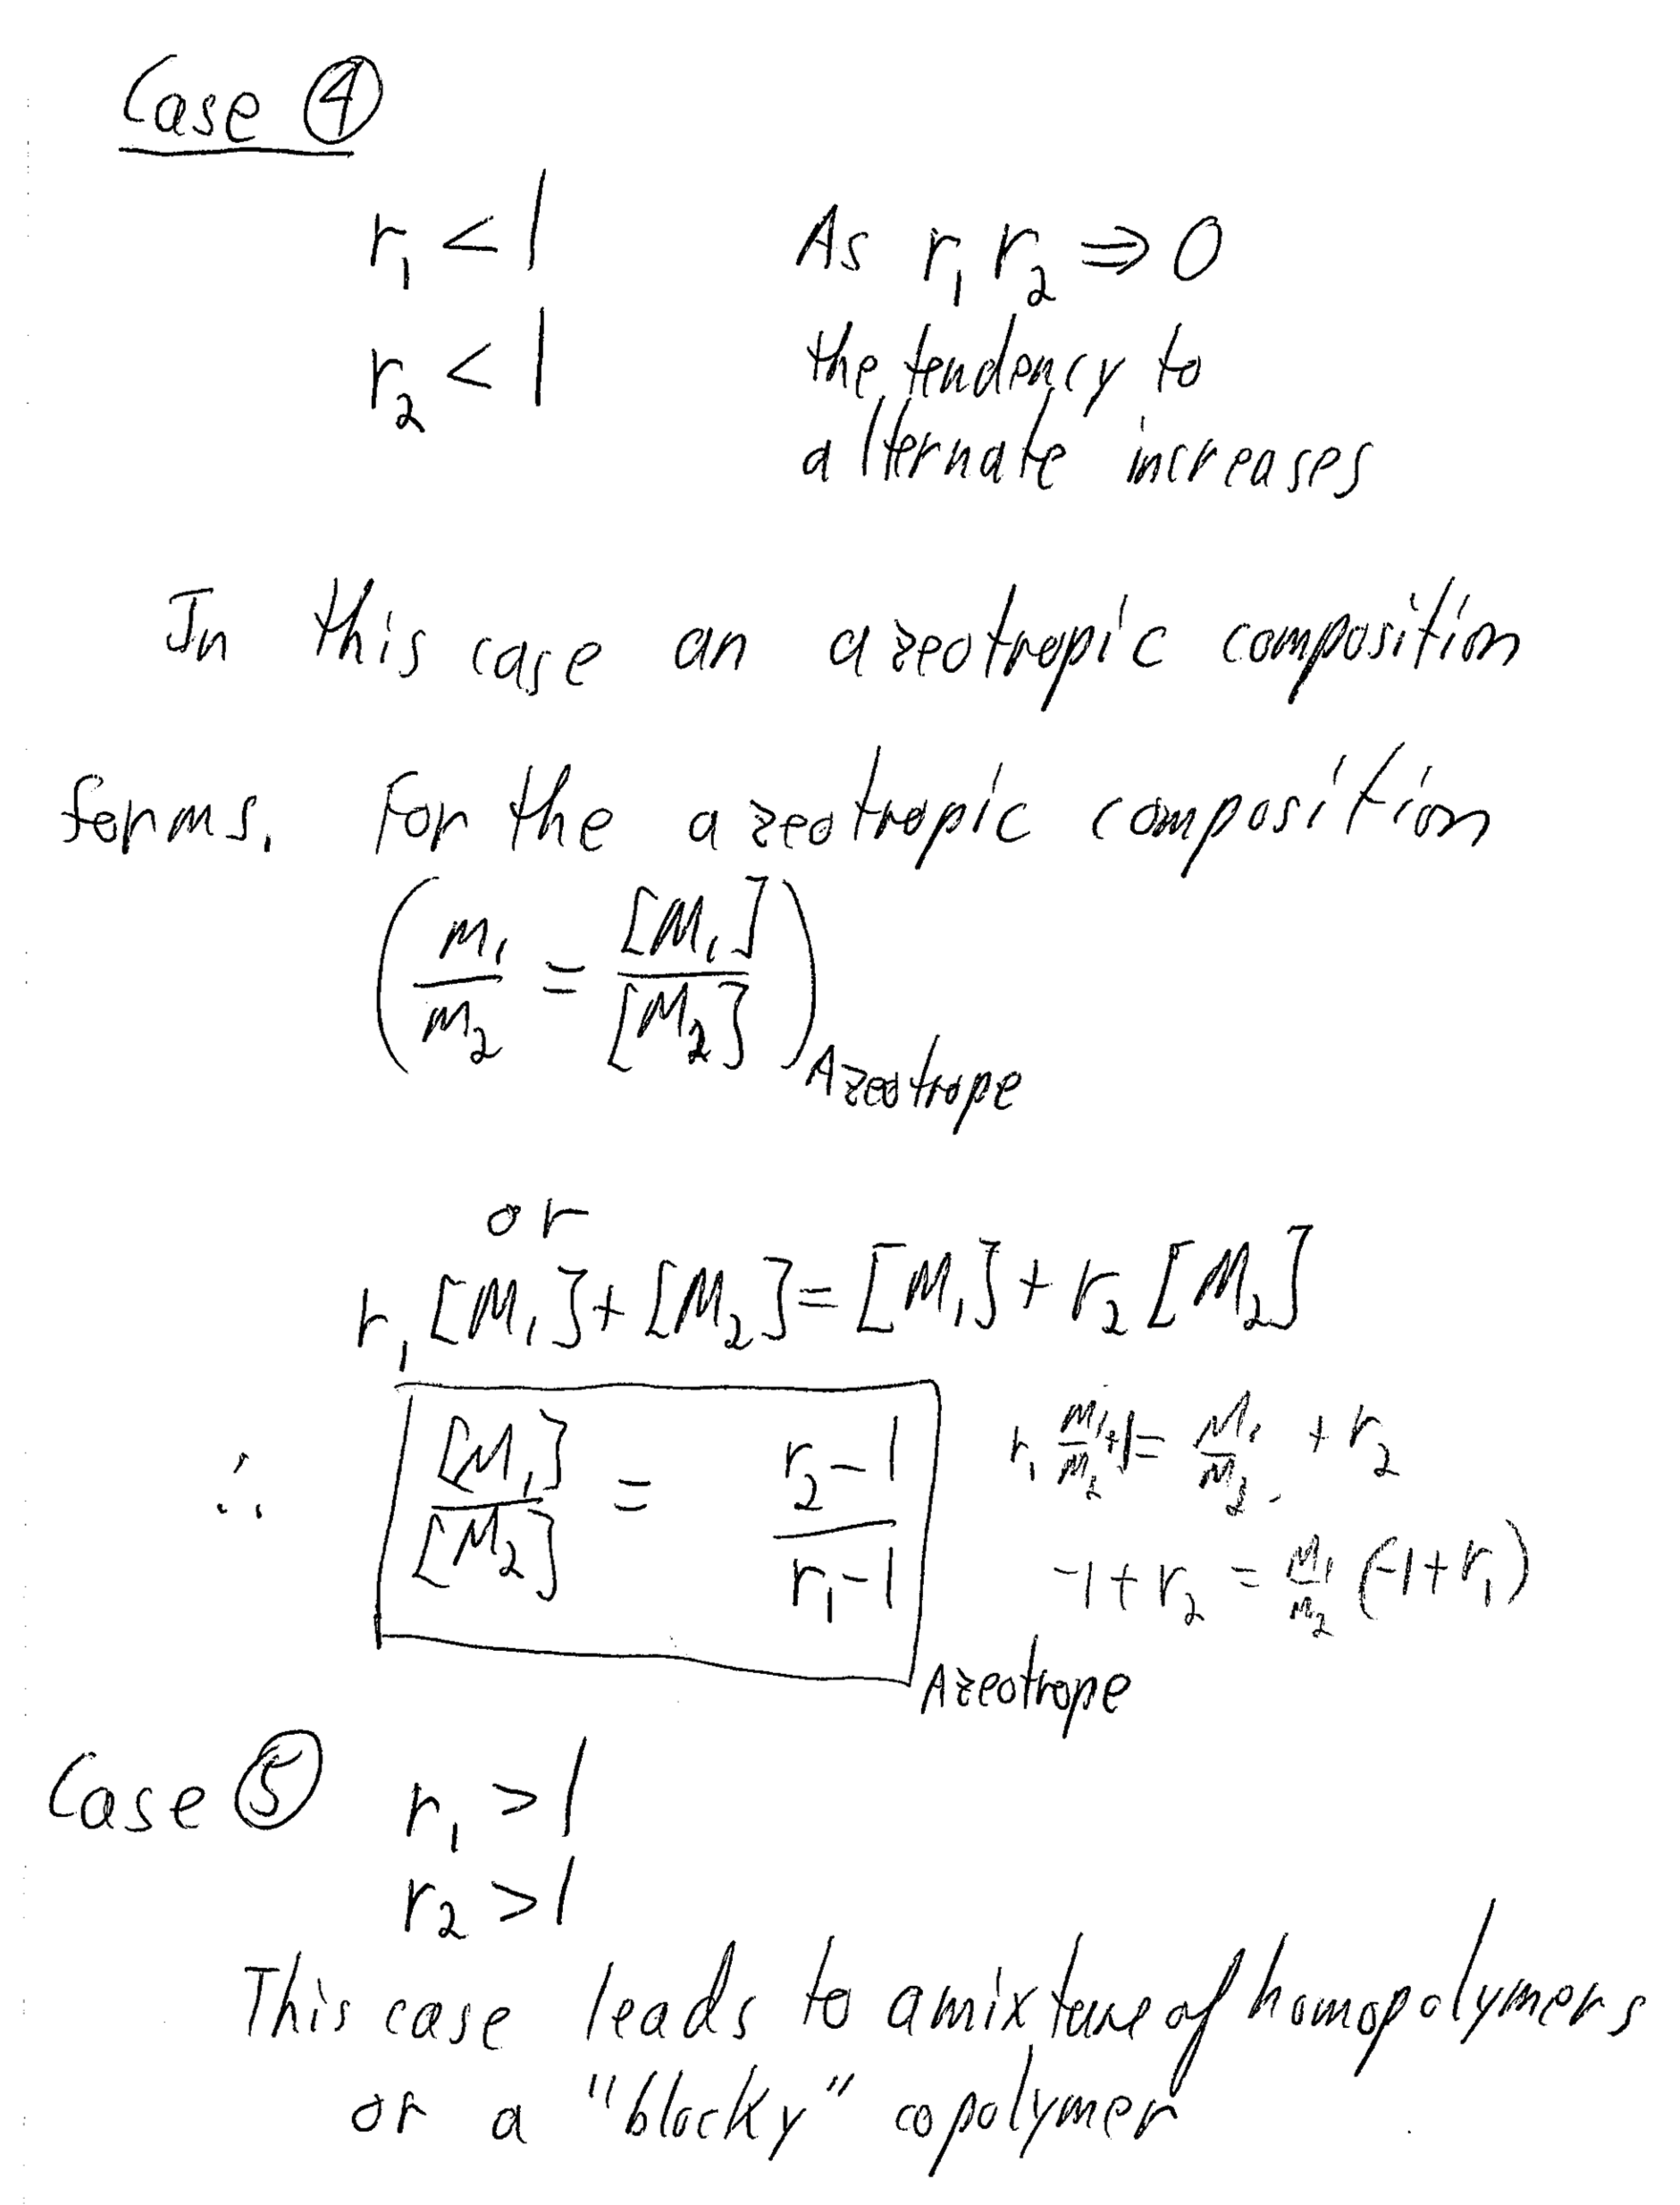 Case ④
r₁ < 1 As r₁ r₂ ⇒ 0
r₂ < 1 the tendency to
alternate increases
In this case an azeotropic composition
forms. For the azeotropic composition
(m₁/m₂ = [M₁]/[M₂]) Azeotrope
or
r₁ [M₁] + [M₂] = [M₁] + r₂ [M₂]
∴ [M₁]/[M₂] = (r₂-1)/(r₁-1) Azeotrope
r₁ M₁/M₂ + 1 = M₁/M₂ + r₂
-1 + r₂ = M₁/M₂ (-1 + r₁)
Case ⑤ r₁ > 1
r₂ > 1
This case leads to a mixture of homopolymers
or a "blocky" copolymer